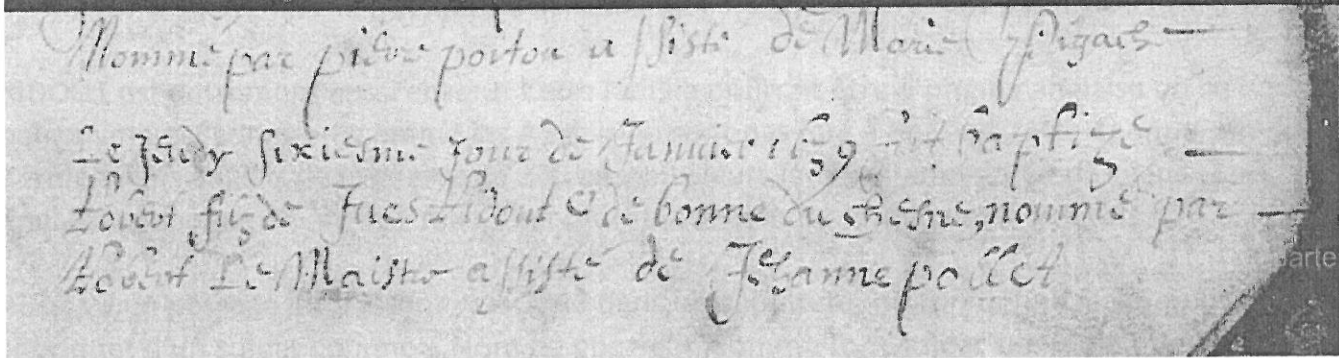 Nomme par pierre porton assiste de Marie Pigache
Le Jeudy sixiesme Jour de Janvier 1659 fut baptize
Robert fils de Jves Ridout & de bonne du chesne, nommé par
Robert Le Maistre assisté de Jehanne pollet